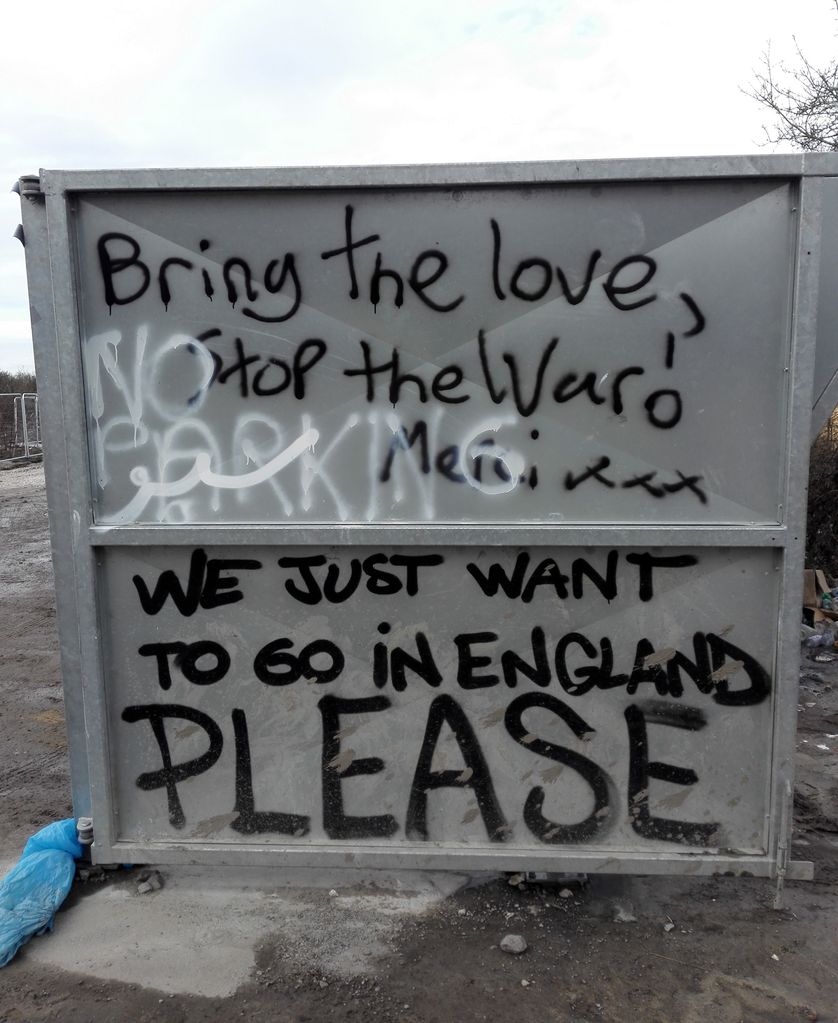 Bring the love,
Stop the War!
NO
PARKING
Merci xxx
WE JUST WANT
TO GO iN ENGLAND
PLEASE